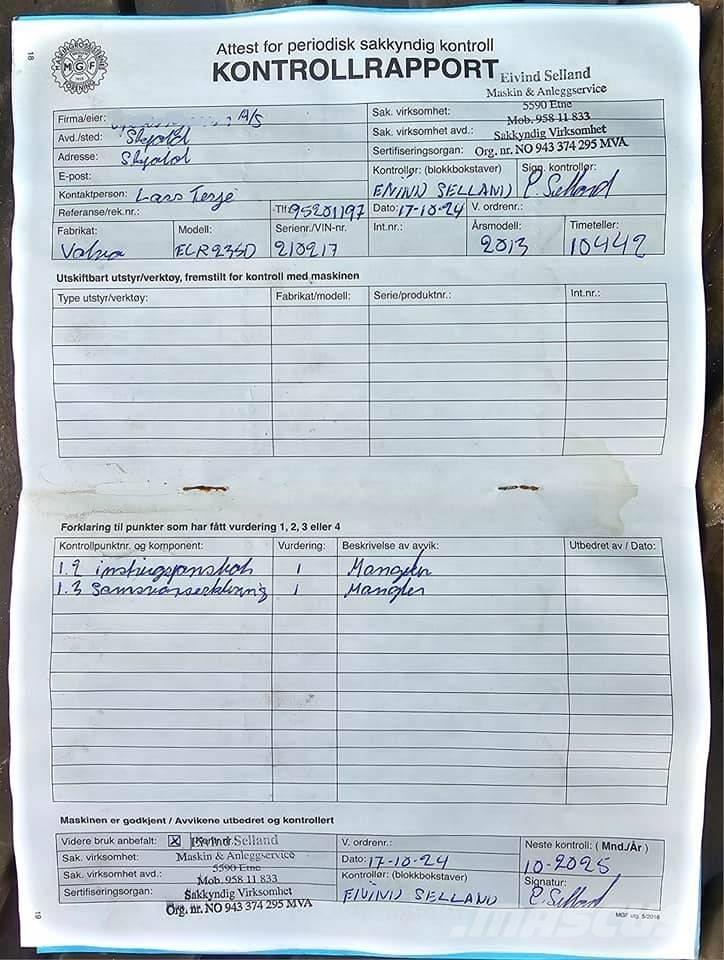 18
MASKINGROSSISTENES FORENING
MGF
Attest for periodisk sakkyndig kontroll
KONTROLLRAPPORT
Eivind Selland
Maskin & Anleggservice
5590 Etne
Mob. 958 11 833
Sakkyndig Virksomhet
Org. nr. NO 943 374 295 MVA
Firma/eier: A/S
Avd./sted: Skjold
Adresse: Skjold
E-post:
Kontaktperson: Lars Terje
Referanse/rek.nr.: Tlf: 95201197
Sak. virksomhet:
Sak. virksomhet avd.:
Sertifiseringsorgan:
Kontrollør: (blokkbokstaver) EIVIND SELLAND
Sign. kontrollør: E. Selland
Dato: 17-10-24 V. ordrenr.:
Fabrikat: Volvo
Modell: ECR235D
Serienr./VIN-nr. 210217
Int.nr.:
Årsmodell: 2013
Timeteller: 10442
Utskiftbart utstyr/verktøy, fremstilt for kontroll med maskinen
Type utstyr/verktøy: Fabrikat/modell: Serie/produktnr.: Int.nr.:
Forklaring til punkter som har fått vurdering 1, 2, 3 eller 4
Kontrollpunktnr. og komponent: Vurdering: Beskrivelse av avvik: Utbedret av / Dato:
1.2 1 Mangler
1.3 Samsvarserklæring 1 Mangler
Maskinen er godkjent / Avvikene utbedret og kontrollert
Videre bruk anbefalt: X Eivind Selland
Sak. virksomhet: Maskin & Anleggservice
5590 Etne
Sak. virksomhet avd.: Mob. 958 11 833
Sertifiseringsorgan: Sakkyndig Virksomhet
Org. nr. NO 943 374 295 MVA
V. ordrenr.:
Dato: 17-10-24
Kontrollør: (blokkbokstaver)
EIVIND SELLAND
Neste kontroll: ( Mnd./År )
10-2025
Signatur:
E. Selland
19
MGF utg. 5/2016
MASCUS